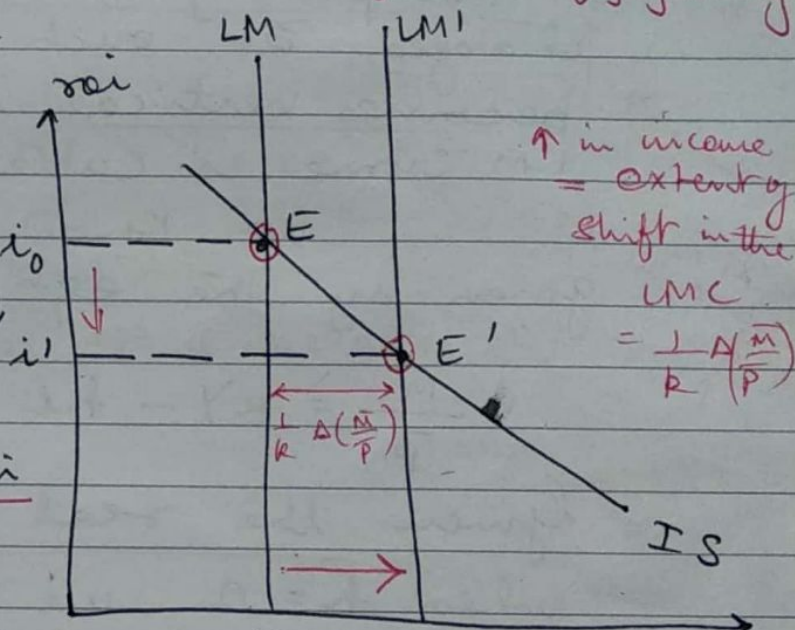 LM
LM'
roi
↑ in income
= extent of
shift in the
LMC
= 1/k Δ(M̅/P̅)
E
i₀
E'
i'
1/k Δ(M̅/P̅)
i
IS